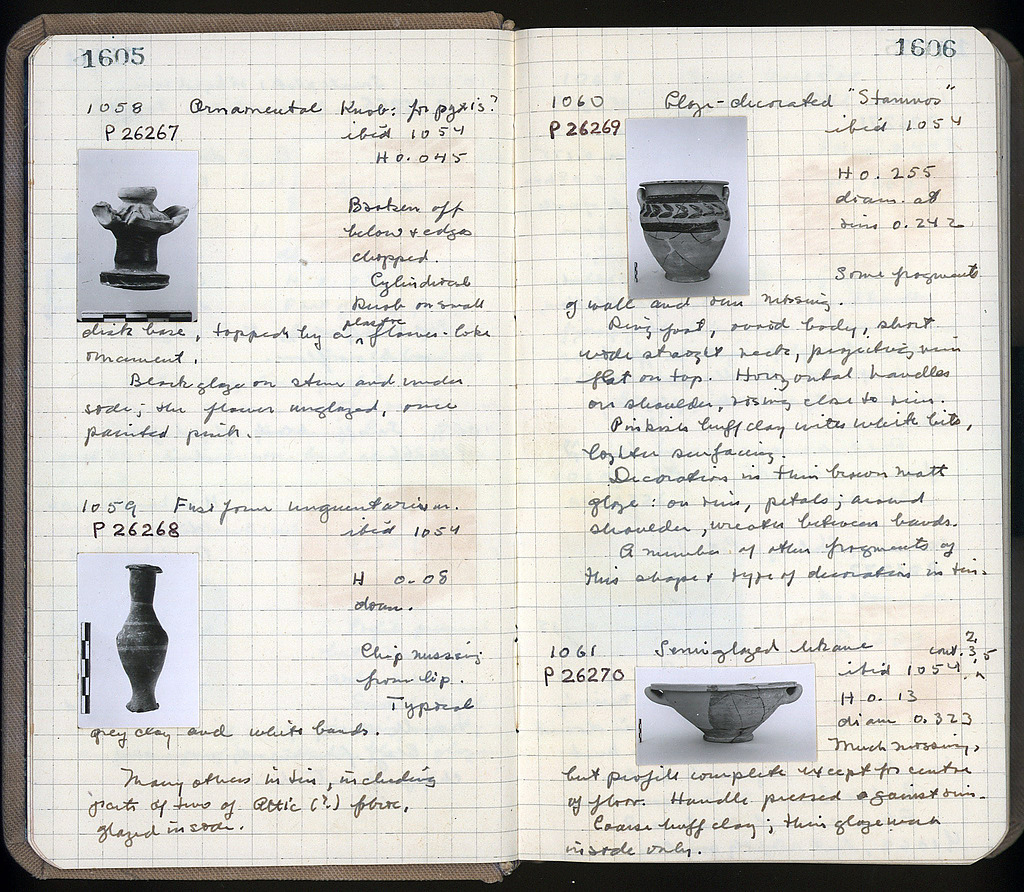 1605
1058 Ornamental Knob: for pyxis?
P 26267 ibid 1054
H 0.045
Broken off
below & edges
chopped.
Cylindrical
Knob on small
disk base, topped by a plastic flower-like
ornament.
Black glaze on stem and under
side; the flower unglazed, once
painted pink.
1059 Fusiform unguentarium.
P 26268 ibid 1054
H 0.08
diam.
Chip missing
from lip.
Typical
grey clay and white bands.
Many others in tin, including
parts of two of Attic (?) fabric,
glazed inside.
1606
1060 Glaze-decorated "Stamnos"
P 26269 ibid 1054
H 0.255
diam. at
rim 0.242
Some fragments
of wall and rim missing.
Ring foot, ovoid body, short
wide straight neck, projecting rim
flat on top. Horizontal handles
on shoulder, rising close to rim.
Pinkish buff clay with white bits,
lighter surfacing.
Decoration in thin brown matt
glaze: on rim, petals; around
shoulder, wreath between bands.
A number of other fragments of
this shape & type of decoration in tin.
1061 Semiglazed lekane
P 26270 ibid 1054
H 0.13
diam 0.323
Much missing,
but profile complete except for centre
of floor. Handle pressed against rim.
Coarse buff clay; thin glaze wash
inside only.